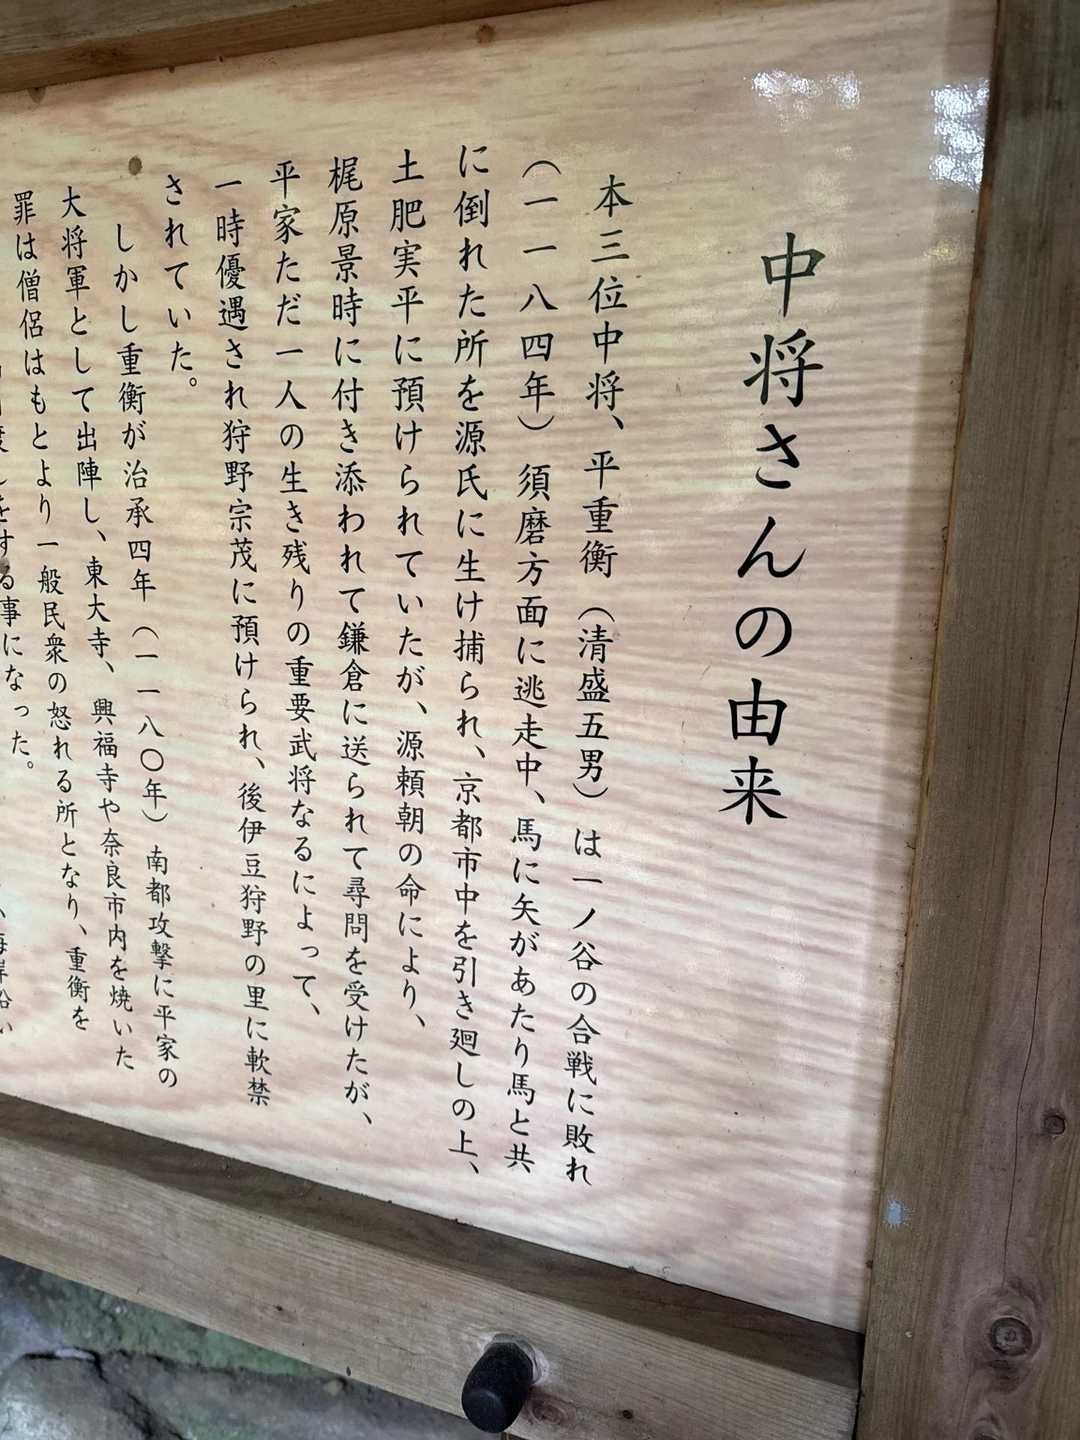 中将さんの由来
本三位中将、平重衡（清盛五男）は一ノ谷の合戦に敗れ
（一一八四年）須磨方面に逃走中、馬に矢があたり馬と共
に倒れた所を源氏に生け捕られ、京都市中を引き廻しの上、
土肥実平に預けられていたが、源頼朝の命により、
梶原景時に付き添われて鎌倉に送られて尋問を受けたが、
平家ただ一人の生き残りの重要武将なるによって、
一時優遇され狩野宗茂に預けられ、後伊豆狩野の里に軟禁
されていた。
しかし重衡が治承四年（一一八〇年）南都攻撃に平家の
大将軍として出陣し、東大寺、興福寺や奈良市内を焼いた
罪は僧侶はもとより一般民衆の怒れる所となり、重衡を
をする事になった。
海岸沿い